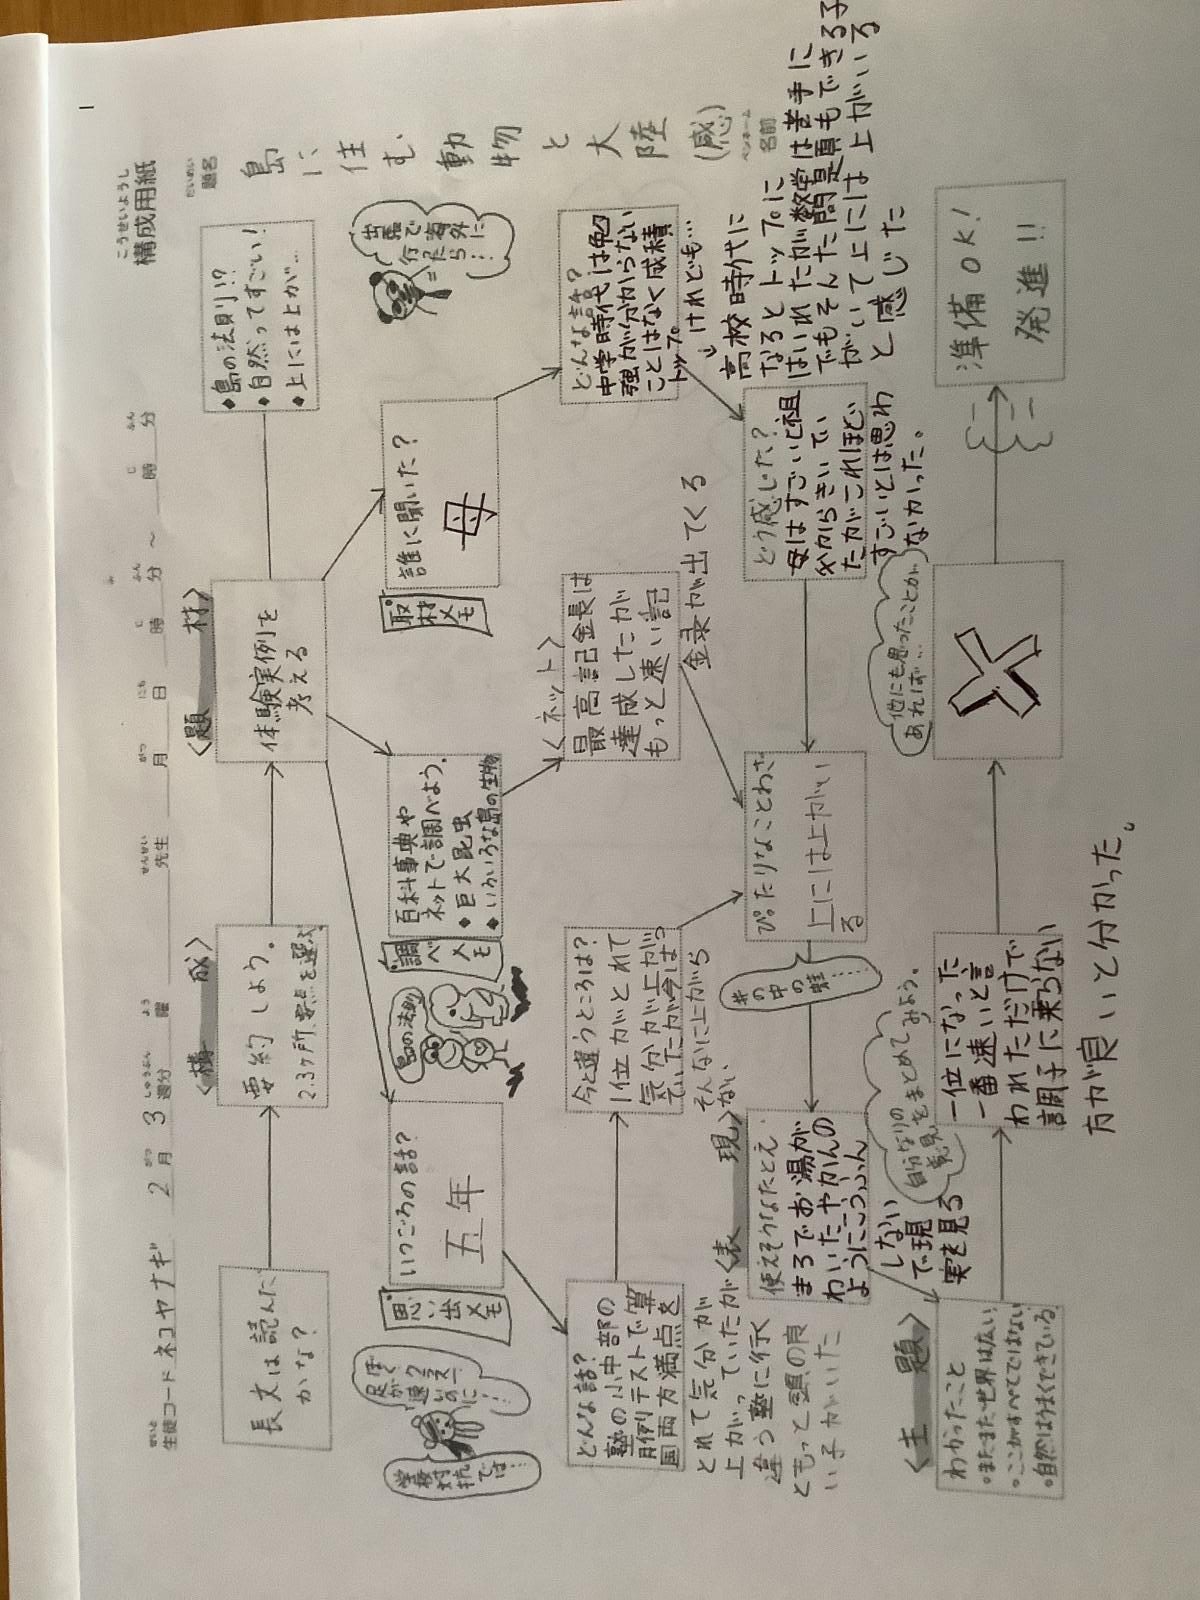 こうせいようし
構成用紙
だいめい
題名
島に住む動物と大陸(感)
ペンネーム
名前
生徒コード ネコヤナギ 2月 3週分 曜 先生 月 日 時 分 ~ 時 分
<構成>
<題材>
長文は読んだ
かな?
要約しよう。
2.3ヶ所、要点を選ぶ
体験実例を
考える
◆島の法則!?
◆自然ってすごい!
◆上には上が…
学校
対抗
では…
ぼく
足が
速
いのに
思い出メモ
いつごろの話?
五年
島の法則
調べメモ
百科事典や
ネットで調べよう。
◆巨大昆虫
◆いろいろな島の生物
取材メモ
誰に聞いた?
母
出張で
行った海外に
…ら…
どんな話?
塾の小中部の
月例テストで算
国両方満点を
とれて気分が
上がっていたが
違う塾に行く
ともっと頭の良
い子がいた
今と違うところは?
1位がとれて
気分が上がっ
ていたが今は
そんなに上がら
ない
<ネット>
最高記金長は
達成したが
もっと速い記
金录が出てくる
どんな話?
中学時代は勉
強が分からない
ことはなく成積
トップ。
↓けれども…
高校時代に
なるとトップに
はいれたが数学は苦手に
でもそんた問題頁もできる子
がいて上には上がいる
と感じた
<表現>
使えそうなたとえ
まろでお湯が
わいたやかんの
ようにこうふん
しない
で現
実を見る
井の中の蛙……
ぴったりなことわざ
上には上がい
る
どう感じた?
母はすごいと祖
父からきいてい
たがこれほど
すごいとは思わ
なかった。
<主題>
わかったこと
•まだまだ世界は広い
•ここがすべてではない
•自然はうまくできている
自分なりの
意見をまとめてみよう。
一位になった
一番速いと言
われただけで
調子に乗らない
方が良いと分かった。
他にも思ったことが
あれば…
準備OK!
発進!!